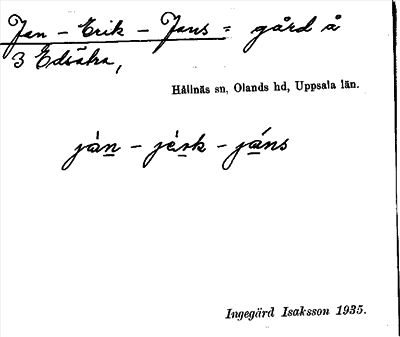 Jan - Erik - Jans = gård å
3 Edsätra,
Hållnäs sn, Olands hd, Uppsala län.
jàn - jèrk - jáns
Ingegärd Isaksson 1935.